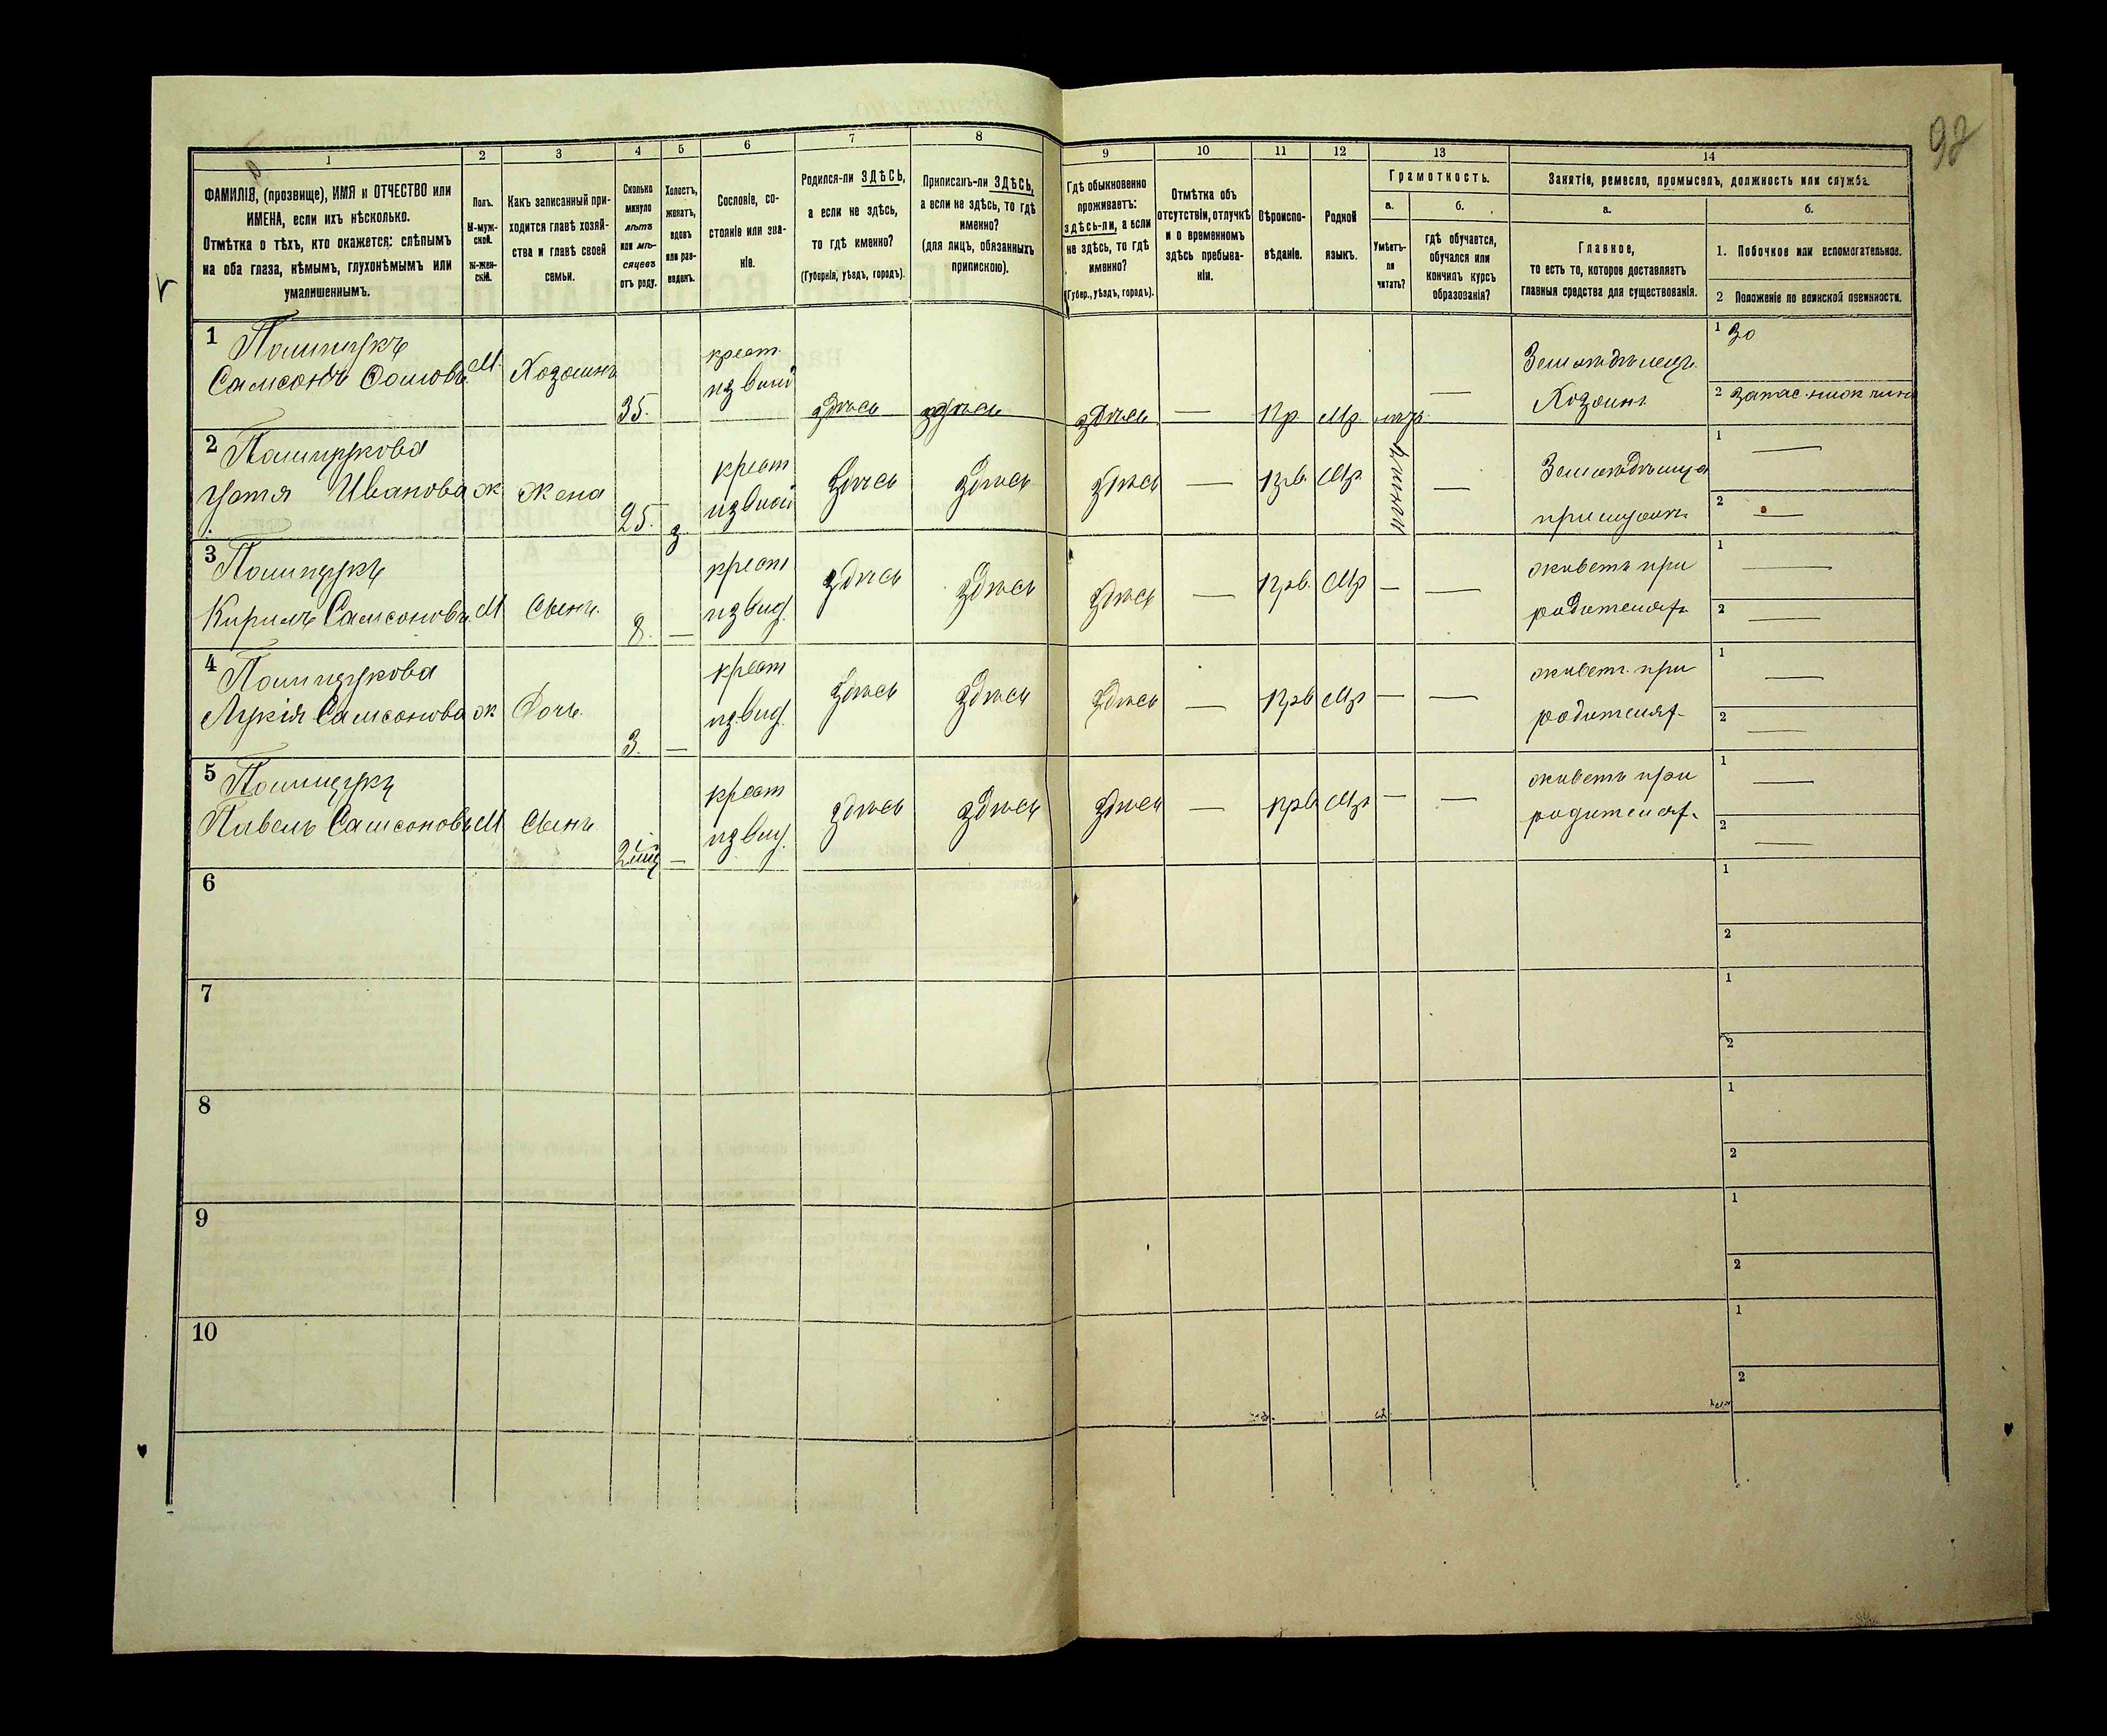 98
1
2
3
4
5
6
7
8
9
10
11
12
13
14
ФАМИЛІЯ, (прозвище), ИМЯ и ОТЧЕСТВО или
ИМЕНА, если ихъ нѣсколько.
Отмѣтка о тѣхъ, кто окажется: слѣпымъ
на оба глаза, нѣмымъ, глухонѣмымъ или
умалишеннымъ.
Полъ.
М-муж-
ской.
Ж-жен-
скій.
Какъ записанный при-
ходится главѣ хозяй-
ства и главѣ своей
семьи.
Сколько
минуло
лѣтъ
или мѣ-
сяцевъ
отъ роду.
Холостъ,
женатъ,
вдовъ
или раз-
веденъ.
Сословіе, со-
стояніе или зва-
ніе.
Родился-ли ЗДѢСЬ,
а если не здѣсь,
то гдѣ именно?
(Губернія, уѣздъ, городъ).
Приписанъ-ли ЗДѢСЬ,
а если не здѣсь, то гдѣ
именно?
(для лицъ, обязанныхъ
припискою).
Гдѣ обыкновенно
проживаетъ:
здѣсь-ли, а если
не здѣсь, то гдѣ
именно?
(Губер., уѣздъ, городъ).
Отмѣтка объ
отсутствіи, отлучкѣ
и о временномъ
здѣсь пребыва-
ніи.
Вѣроиспо-
вѣданіе.
Родной
языкъ.
Грамотность.
а.
Умѣетъ-
ли
читать?
б.
гдѣ обучается,
обучался или
кончилъ курсъ
образованія?
Занятіе, ремесло, промыселъ, должность или служба.
а.
Главное,
то есть то, которое доставляетъ
главныя средства для существованія.
б.
1. Побочное или вспомогательное.
2 Положеніе по воинской повинности.
1
Самсонъ
М.
Хозяинъ
35.
крест.
здѣсь
здѣсь
здѣсь
—
Пр.
Мр.
—
Земледѣлецъ.
Хозяинъ
1
2
2
Устя Иванова
ж
Жена
25.
крест
здѣсь
здѣсь
здѣсь
—
Прв.
Мр.
—
1 —
2 —
3
Кирилъ Самсоновъ
М
Сынъ.
8.
—
крест
здѣсь
здѣсь
здѣсь
—
Прв.
Мр
—
—
живетъ при
родителях
1 —
2 —
4
Лукія Самсонова
ж
Дочь.
3.
—
крест
здѣсь
здѣсь
здѣсь
—
Прв
Мр
—
—
живетъ при
родителях
1 —
2 —
5
Павелъ Самсоновъ
М
Сынъ
—
крест
здѣсь
здѣсь
здѣсь
—
прв
Мр
—
—
живетъ при
родителях.
1 —
2 —
6
1
2
7
1
2
8
1
2
9
1
2
10
1
2